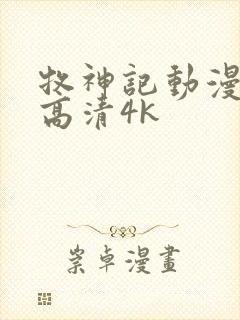 牧神記動漫
高清4K
崇卓漫畫